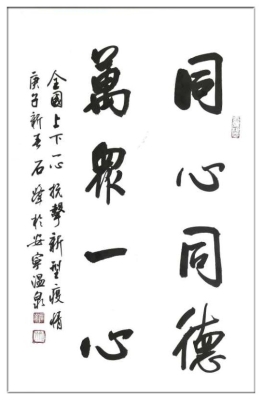 同心同德
萬眾一心
全國上下一心抗擊新型疫情
庚子新春石 於安寧溫泉